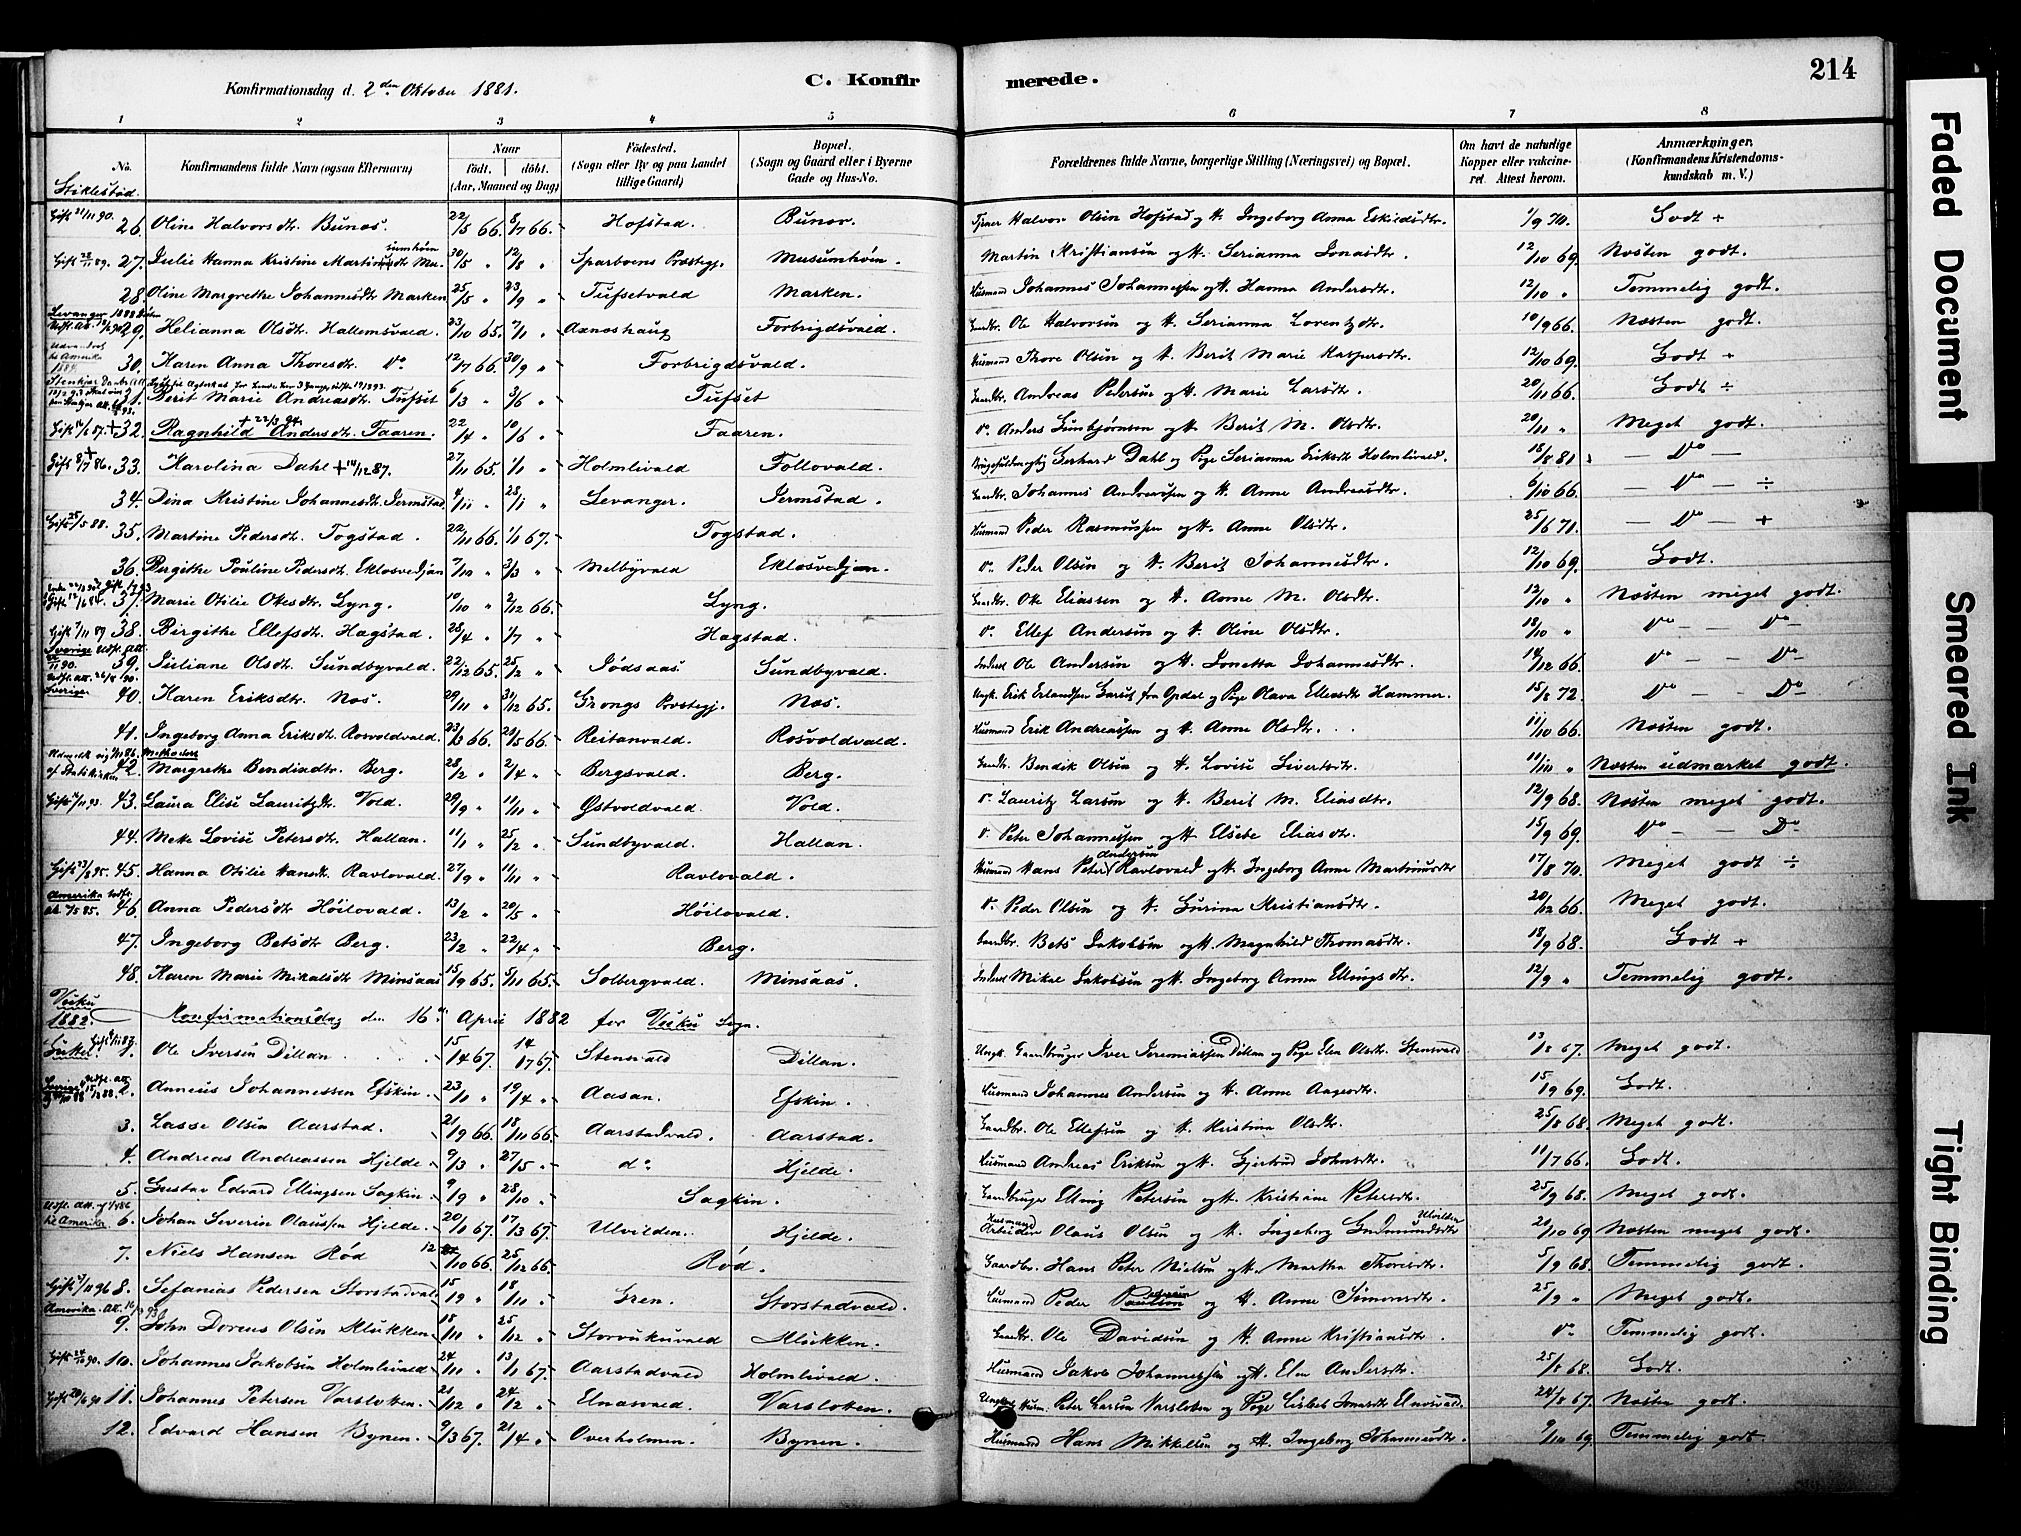 214
Konfirmationsdag d. 2den Oktober 1881.
C. Konfirmerede.
1 2 3 4 5 6 7 8
No.
Konfirmandens fulde Navn (ogsaa Efternavn)
Naar
Födt. döbt.
(Aar, Maaned og Dag)
Födested.
(Sogn eller By og paa Landet tillige Gaard)
Bopæl.
(Sogn og Gaard eller i Byerne Gade og Hus-No.
Forældrenes fulde Navne, borgerlige Stilling (Næringsvei) og Bopæl.
Om havt de naturlige Kopper eller vakcineret. Attest herom.
Anmærkninger.
(Konfirmandens Kristendomskundskab m. V.)
Stiklestad.
26. Oline Halvorsdtr. Bunæs. 22/5 66. 8/7 66. Hofstad. Halvor Olsen Hofstad og H. Ingeborg Anna 1/9 70. Godt +
27. Julie Hanna Kristine 30/5 " 12/8 " Sparboens Præstegj. Musumhøin. Martin Kristiansen og H. Serianna Jonasdtr. 12/10 69. Næsten godt.
28. Oline Margrethe Johannesdtr. Marken 25/5 " 23/9 " Tufsetvald Marken. Husmand Johannes Johannessen og H. Hanna Andersdtr. 12/10 " Temmelig godt.
29. Helianna Olsdtr. Hallemsvald. 23/10 65. 7/1 " Axnæshaug Forbrigdsvald. Gaardbr. Ole Halvorsen og H. Serianna Lorentzdtr. 10/9 66. Næsten godt.
30. Karen Anna Thoresdtr. Do 12/7 66. 30/9 " Forbrigdsvald. Husmand Thore Olsen og H. Berit Marie Kaspersdtr. 12/10 69. Godt +
31. Berit Marie Andreasdtr. Tufset 6/3 " 3/6 " Tufset Gaardbr. Andreas Pedersen og H. Marie Larsdtr. 20/11 66. Godt ÷
32. Ragnhild Andersdtr. Faaren. 22/4 " 10/6 " Faaren. Do. Anders Gunbjørnsen og H. Berit M. Olsdtr. 20/11 " Meget godt.
Gift 8/7 86. 33. Karolina Dahl + 14/12 87. 27/11 65. 1/1 " Holmlivald Follovald. Gerhard Dahl og Pige Serianna Eriksdtr. Holmlivald. 15/8 81. — Do —
34. Dina Kristine Johannesdtr. Jermstad. 4/11 " 28/1 " Levanger. Jermstad. Gaardbr. Johannes Andreassen og H. Anne Andreasdtr. 6/10 66. — Do — ÷
Gift 25/5 88. 35. Martine Pedersdtr. Togstad. 22/11 66. 1/1 67. Togstad. Husmand Peder Rasmussen og H. Anne Olsdtr. 25/6 71. — Do — +
36. Bergithe Pauline Pedersdtr. Eklosvedjan 7/10 " 3/3 " Melbyvald Eklosvedjan. Do. Peder Olsen og H. Berit Johannesdtr. 12/10 69. Godt.
37. Marie Otilie Okesdtr. Lyng. 10/10 " 2/12 66. Lyng. Gaardbr. Oke Eliassen og H. Anne M. Olsdtr. 12/10 " Næsten meget godt.
38. Birgithe Ellefsdtr. Hagstad. 28/4 " 1/7 " Hagstad. Do. Ellef Andersen og H. Oline Olsdtr. 18/10 " Do — — Do —
39. Juliane Olsdtr. Sundbyvald. 22/12 65. 25/2 " Jødsaas Sundbyvald. Inderst Ole Andersen og H. Jonetta Johannesdtr. 14/12 66. Do — — Do —
Sverige 40. Karen Eriksdtr. Næs. 29/11 " 31/12 65. Grongs Præstegj. Næs. Ungk. Erik Erlandsen Garsit fra Opdal og Pige Olava Ellevsdtr. Hammer. 15/8 72. Do — — Do
41. Ingeborg Anna Eriksdtr. Rosvoldvald. 23/3 66. 20/5 66. Reitanvald. Rosvoldvald. Husmand Erik Andreassen og H. Anne Olsdtr. 11/10 66. Næsten godt.
42. Margrethe Bendiksdtr. Berg. 28/2 " 2/4 " Bergsvald. Berg. Gaardbr. Bendik Olsen og H. Lovise Sivertsdtr. 11/10 " Næsten udmærket godt.
43. Laura Elise Lauritzdtr. Vold. 29/9 " 11/11 " Østvoldvald. Vold. Do. Lauritz Larsen og H. Berit M. Eliasdtr. 12/9 68. Næsten meget godt.
44. Meke Lovise Petersdtr. Hallan. 11/1 " 25/2 " Sundbyvald. Hallan. Do. Peter Johannessen og H. Elsebe Eliasdtr. 15/9 69. Do — — Do
45. Hanna Otilie Hansdtr. Ravlovald. 27/9 " 11/11 " Ravlovald. Husmand Hans Peter Andersen Ravlovald og H. Ingeborg Anne Martinusdtr 17/8 70. Meget godt ÷
Amerika 46. Anna Pedersdtr. Höilovald. 13/2 " 20/5 " Höilovald. Do. Peder Olsen og H. Gurina Kristiansdtr. 20/12 66. Meget godt.
47. Ingeborg Betsdtr. Berg. 23/2 " 22/4 " Berg. Gaardbr. Bets Jakobsen og H. Magnhild Thomasdtr. 18/9 68. Godt +
48. Karen Marie Mikalsdtr. Minsaas 15/9 65. 5/11 65. Solbergvald. Minsaas. Inderst Mikal Jakobsen og H. Ingeborg Anna Ellingsdtr. 12/9 " Temmelig godt.
Vuku 1882. Konfirmationsdag den 16de April 1882 for Vuku Sogn.
1. Ole Iversen Dillan 15/1 67. 14/7 67. Stensvald Dillan. Ungk. Gaardbruger Iver Jeremiassen Dillan og Pige Elen Olsdtr. Stensvald 13/8 67. Meget godt.
2. Anneus Johannessen Efskin. 23/1 " 19/4 " Aasan. Efskin. Husmand Johannes Andersen og H. Anne Aagesdtr. 15/9 69. Godt.
3. Lasse Olsen Aarstad. 21/9 66. 18/11 66. Aarstadvald. Aarstad. Gaardbr. Ole Ellefsen og H. Kristina Olsdtr. 25/8 68. Meget godt.
4. Andreas Andreassen Hjelde. 9/3 " 27/5 " do. Hjelde. Husmand Andreas Eriksen og H. Gjertrud Johnsdtr. 11/7 66. Godt.
5. Gustav Edvard Ellingsen Sagkin. 9/9 " 28/10 " Sagkin. Gaardbruger Elling Petersen og H. Kristiane Petersdtr. 25/9 68. Meget godt.
6. Johan Severin Olaussen Hjelde. 20/1 67. 17/3 67. Ulvilden. Hjelde. Husmand Arbeider Olaus Olsen og H. Ingeborg Gudmundsdtr Ulvilden 20/10 69 Næsten meget godt.
7. Niels Hansen Rød 12/10 66. 25/12 66. Rød. Gaardbr. Hans Peter Nielsen og H. Martha Thoresdtr. 5/9 68. Temmelig godt.
8. Sefanias Pedersen Storstadvald 15/9 " 18/11 " Gren. Storstadvald. Husmand Peder Paulsen og H. Anne Simonsdtr. 25/9 " Meget godt.
9. John Doreus Olsen Klukken 18/11 " 25/12 " Storvukuvald Klukken. Gaardbr. Ole Davidsen og H. Anne Kristiansdtr. Do Temmelig godt.
10. Johannes Jakobsen Holmlivald 24/11 " 13/1 67. Aarstadvald Holmlivald. Husmand Jakob Johannessen og H. Elen Andersdtr. 25/8 68. Godt.
11. Johannes Petersen Varsloken. 21/12 " 24/2 " Elnæsvald. Varsloken. Peter Larsen Varsloken og Pige Lisbet Jonasdtr. Elnæsvald. 24/8 67. Næsten godt.
12. Edvard Hansen Bynen. 9/3 67. 21/4 " Overholmen. Bynen. Husmand Hans Mikkelsen og H. Ingeborg Johannesdtr. 9/10 69. Temmelig godt.
Faded Document
Smeared Ink
Tight Binding